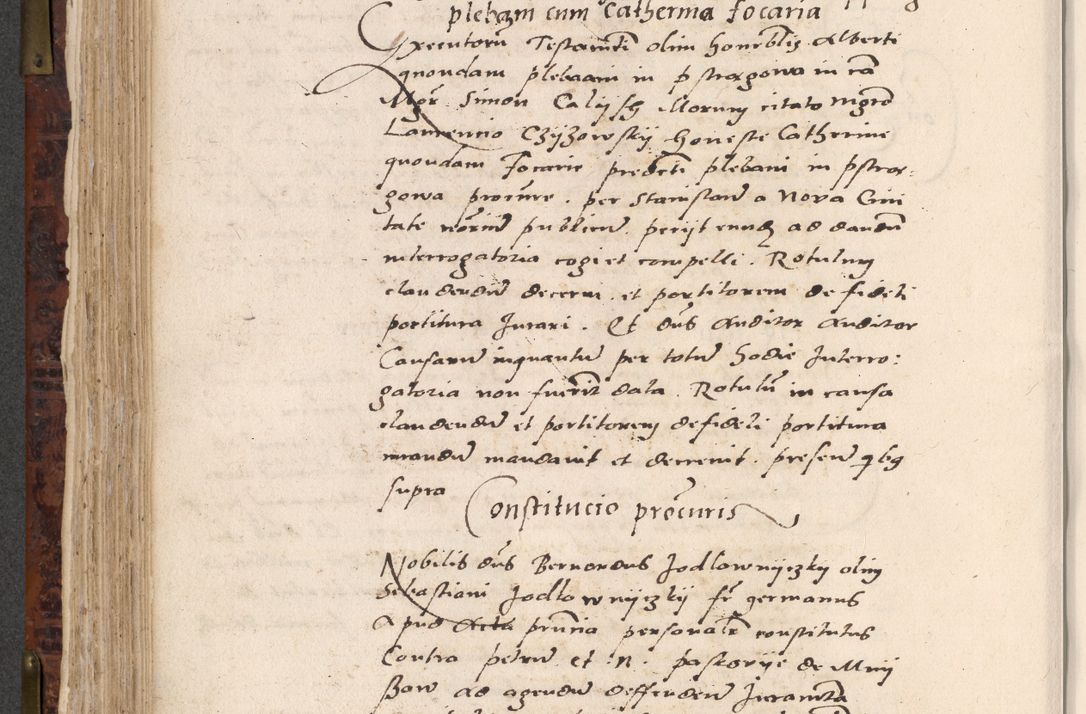 plebam cum Catherina focaria
Executorū Testamēti olim honorblis Alberti
quondam plebani in pstragowa in cā
Mgr Simon Calijsch Morum citato mgrō
Laurencio Czijzowskij honeste Catherine
quondam focarie predicti plebani in pstror:
gowa procure . per Stanislaū a Nova Civi
tate notariū publicū . perijt eundē ad dandū
interrogatoria cogi et compelli . Rotulum
claudendū decerni . et portitorem de fideli
portitura Jurari . Et dn̄s Auditor Auditor
Causarū inquantū per totū hodie Interro:
gatoria non fuerint data . Rotulū in causa
claudendū et portitorem de fideli portitura
iurandū mandavit et decrevit . presentꝰ qbꝰ
supra
Constitucio procuris
Nobilis dn̄s Bernardus Jodlownijczkij olim
Sebastiani Jodlownijczkij fr̄ germanus
Apud Acta prn̄cia personalr̄ constitutus
Contra petrū et .N. pastorije de Mnij
szow ad agendū deffendendū Juramēta